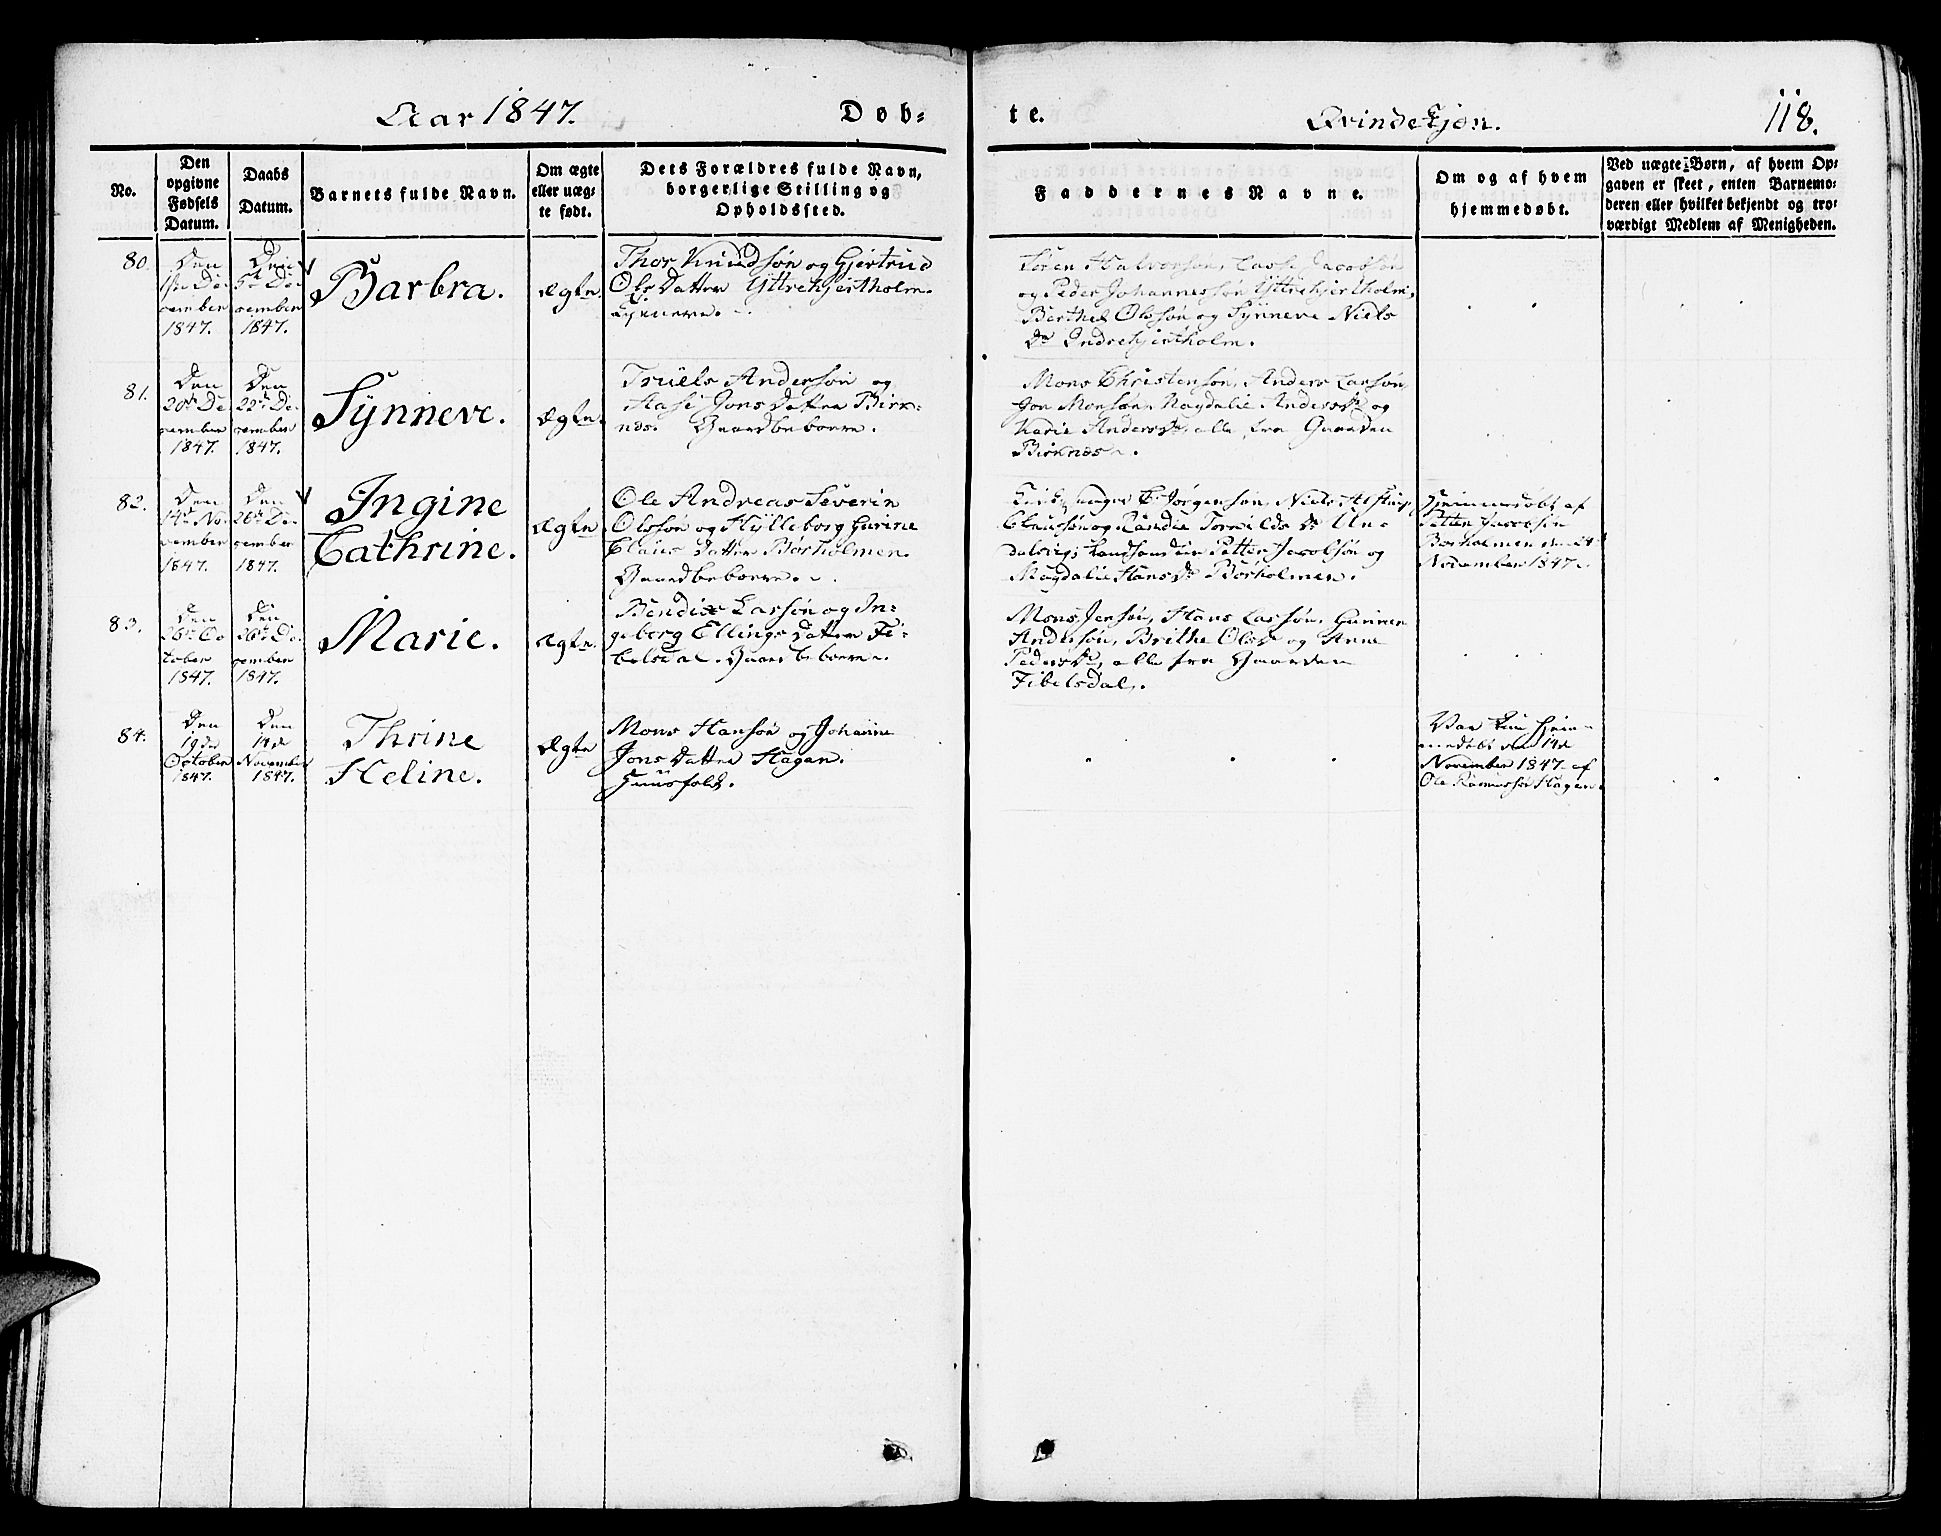 Aar 1847.
Døb-
te.
Qvindekjøn.
118.
No.
Den
opgivne
Fødsels
Datum.
Daabs
Datum.
Barnets fulde Navn.
Om ægte
eller uæg-
te født.
Dets Forældres fulde Navn,
borgerlige Stilling og
Opholdssted.
Faddernes Navne.
Om og af hvem
hjemmedøbt.
Ved uægte Børn, af hvem Op-
gaven er skeet, enten Barnemo-
deren eller hvilket bekjendt og tro-
værdigt Medlem af Menigheden.
80.
Den
1ste De-
cember
1847.
Den
5te De-
cember
1847.
Barbra.
Ægte.
Thor Knudsøn og Gjertrud
Ols Datter Yttrehjertholm.
Søren Halvorsøn, Lasse Jacobsøn
og Peder Johannessøn Yttrehjertholm,
Berthel Olssøn og Synneve Niels
Dr Indrehjertholm.
81.
Den
20de De
cember
1847.
Den
22de De-
cember
1847.
Synneve.
Ægte.
Truels Andersøn og
Stasi Jons Datter Birk-
næs. Gaardbeboere.
Mons Christensøn, Anders Larsøn,
Jon Monsøn, Magdalie Andersdr og
Karie Andersdr, alle fra Gaarden
Birknæs.
82.
Den
14de No
vember
1847.
Den
26de De
cember
1847.
Ingine
Cathrine.
Ægte
Ole Andreas Severin
Olsson og Hylleborg Gurine
Claus Datter Børholmen.
Gaardbeboere.
Jørgensøn, Niels
Claussøn og Randie Dr Un-
dalsvig, Petter Jacobsøn og
Magdalie Hans Dr Børholmen.
Hjemmedøbt af
Petter Jacobsøn
Børholmen den
November 1847.
83.
Den
26de Oc
tober
1847.
Den
26de De-
cember
1847.
Marie.
Ægte.
Bendix Larsøn og In-
geborg Ellings Datter Fi-
belsdal. Gaardbeboere.
Mons Jensøn, Hans Larsøn, Gunner
Andersøn, Brithe Olsdr og Anne
Pedersdr, alle fra Gaarden
Fibelsdal.
84.
Den
19de
October
1847.
Den
14de
November
1847.
Thrine
Heline.
Ægte
Mons Hansøn og Johanne
Jons Datter Hagan.
Huusfolk.
Var kun hjem-
medøbt den 14de
November 1847 af
Ole Rasmussøn Hagan.